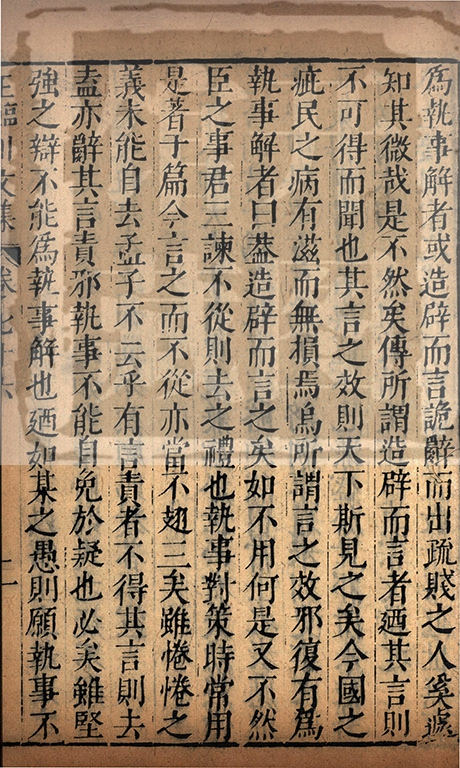 爲執事解者或造辟而言詭辭而出疏賤之人奚遽
知其微哉是不然矣傳所謂造辟而言者廼其言則
不可得而聞也其言之效則天下斯見之矣今國之
疵民之病有滋而無損焉烏所謂言之效邪復有爲
執事解者曰葢造辟而言之矣如不用何是又不然
臣之事君三諫不從則去之禮也執事對策時常用
是著于篇今言之而不從亦當不翅三矣雖惓惓之
義未能自去孟子不云乎有言責者不得其言則去
盍亦辭其言責邪執事不能自免於疑也必矣雖堅
強之辯不能爲執事解也廼如某之愚則願執事不
王臨川文集 卷七十六 二